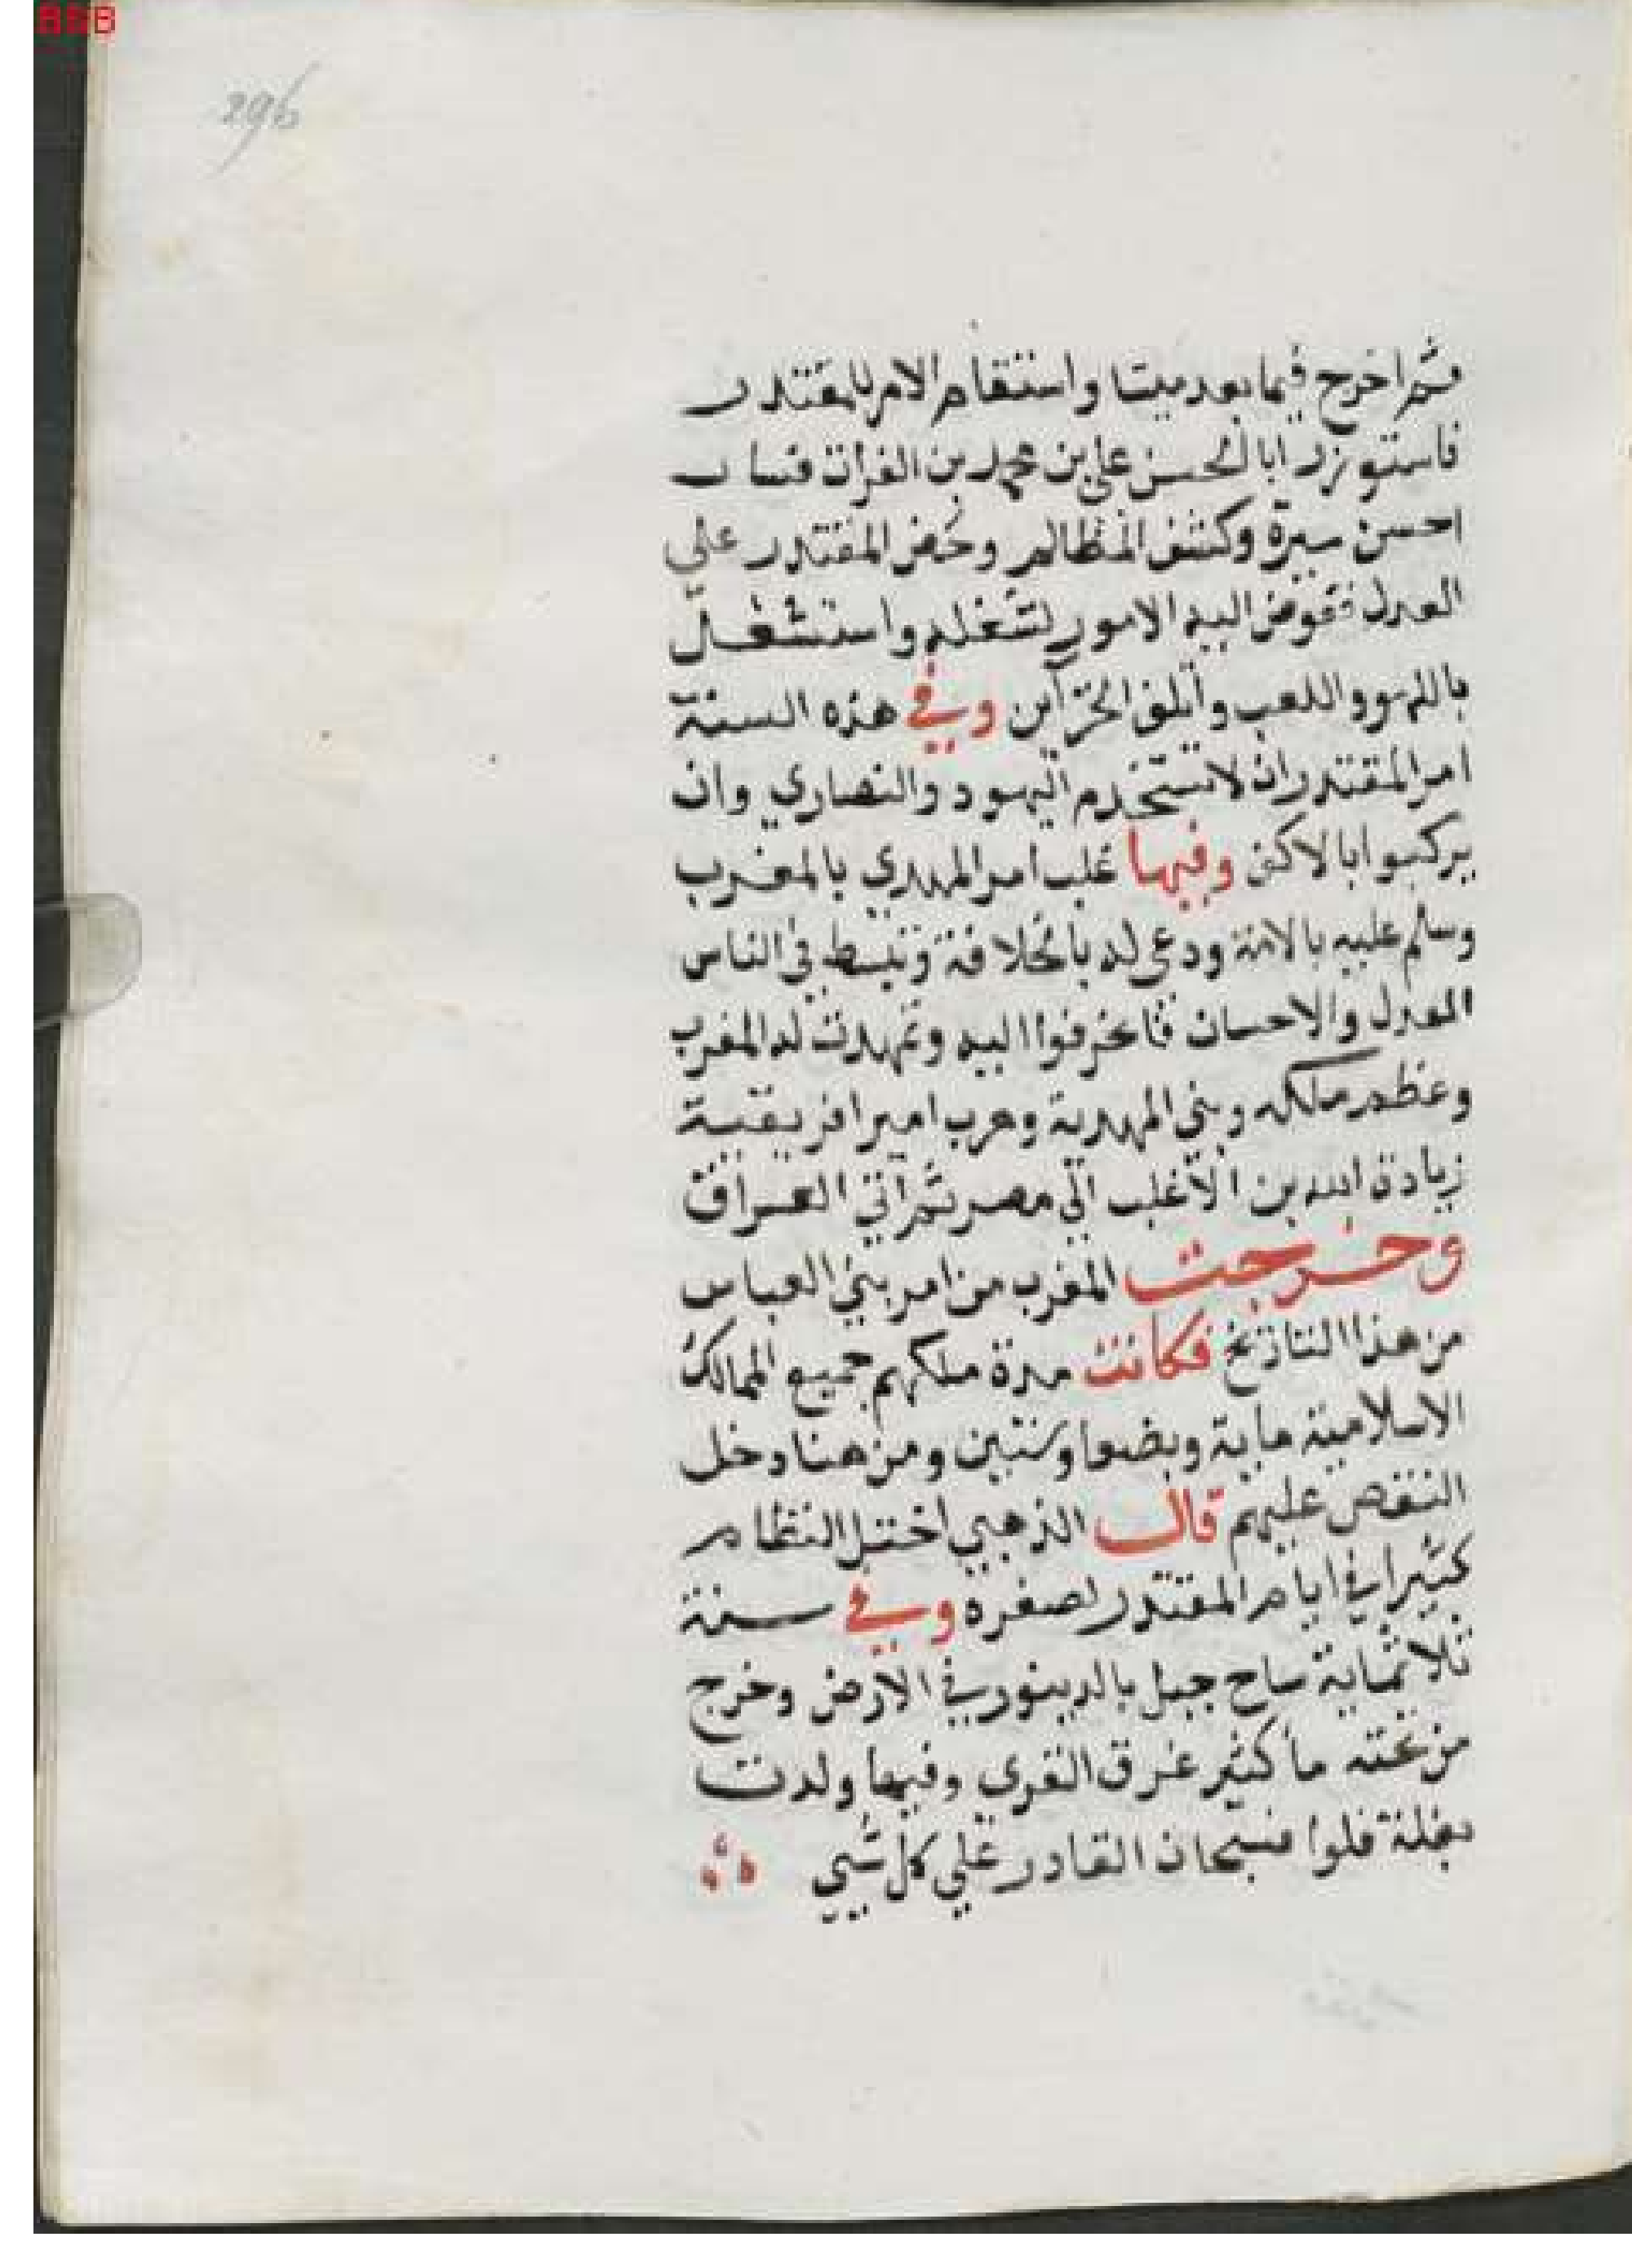 296
ثم اخرج فيما بعد ميتا واستقام الامر للمقتدر
فاستوزر ابا الحسن علي بن محمد بن الفرات فسار
احسن سيرة وكشف المظالم وحض المقتدر علي
العدل ففوض اليه الامور لشغله واستشغل
باللهو واللعب واتلف الخزاين وفي هذه السنة
امر المقتدر ان لا تستخدم اليهود والنصاري وان
يركبوا بالاكف وفيها غلب امر المهدي بالمغرب
وسلم عليه بالامة ودعي له بالخلافة وبسط في الناس
العدل والاحسان فانحرفوا اليه وتمهدت له المغرب
وعظم ملكه وبني المهدية وهرب امير افريقية
زيادة الله بن الاغلب الي مصر ثم اتي العراق
وخرجت المغرب من امر بني العباس
من هذا التاريخ فكانت مدة ملكهم جميع الممالك
الاسلامية ماية وبضعا وستين ومن هنا دخل
النقص عليهم قال الذهبي اختل النظام
كثيرا في ايام المقتدر لصغره وفي سنة
ثلاثماية ساح جبل بالدينور في الارض وخرج
من تحته ما كثير غرق القري وفيها ولدت
بغلة فلوا فسبحان القادر علي كل شيي